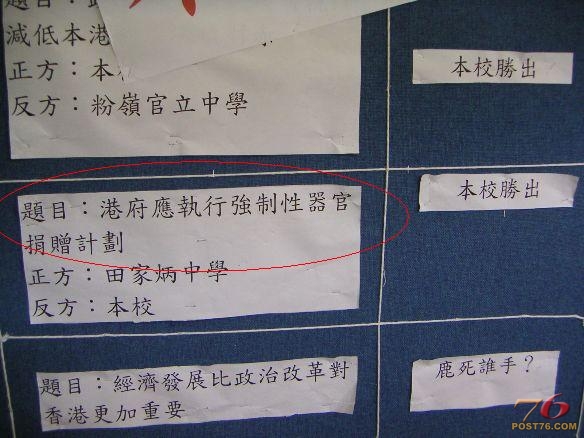 題目：
減低本港
正方：本校
反方：粉嶺官立中學
本校勝出
題目：港府應執行強制性器官
捐贈計劃
正方：田家炳中學
反方：本校
本校勝出
題目：經濟發展比政治改革對
香港更加重要
鹿死誰手？
76
POST76.COM